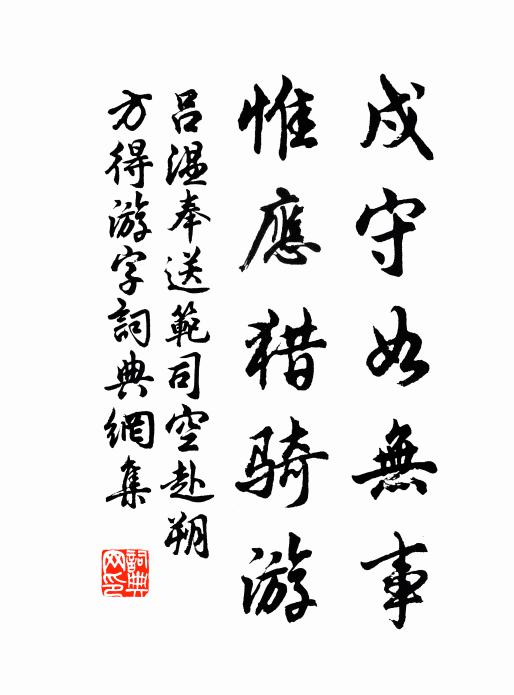 戍守如無事
惟應猎骑游
吕温奉送範司空赴朔
方得游字詞典網集
詞典网印